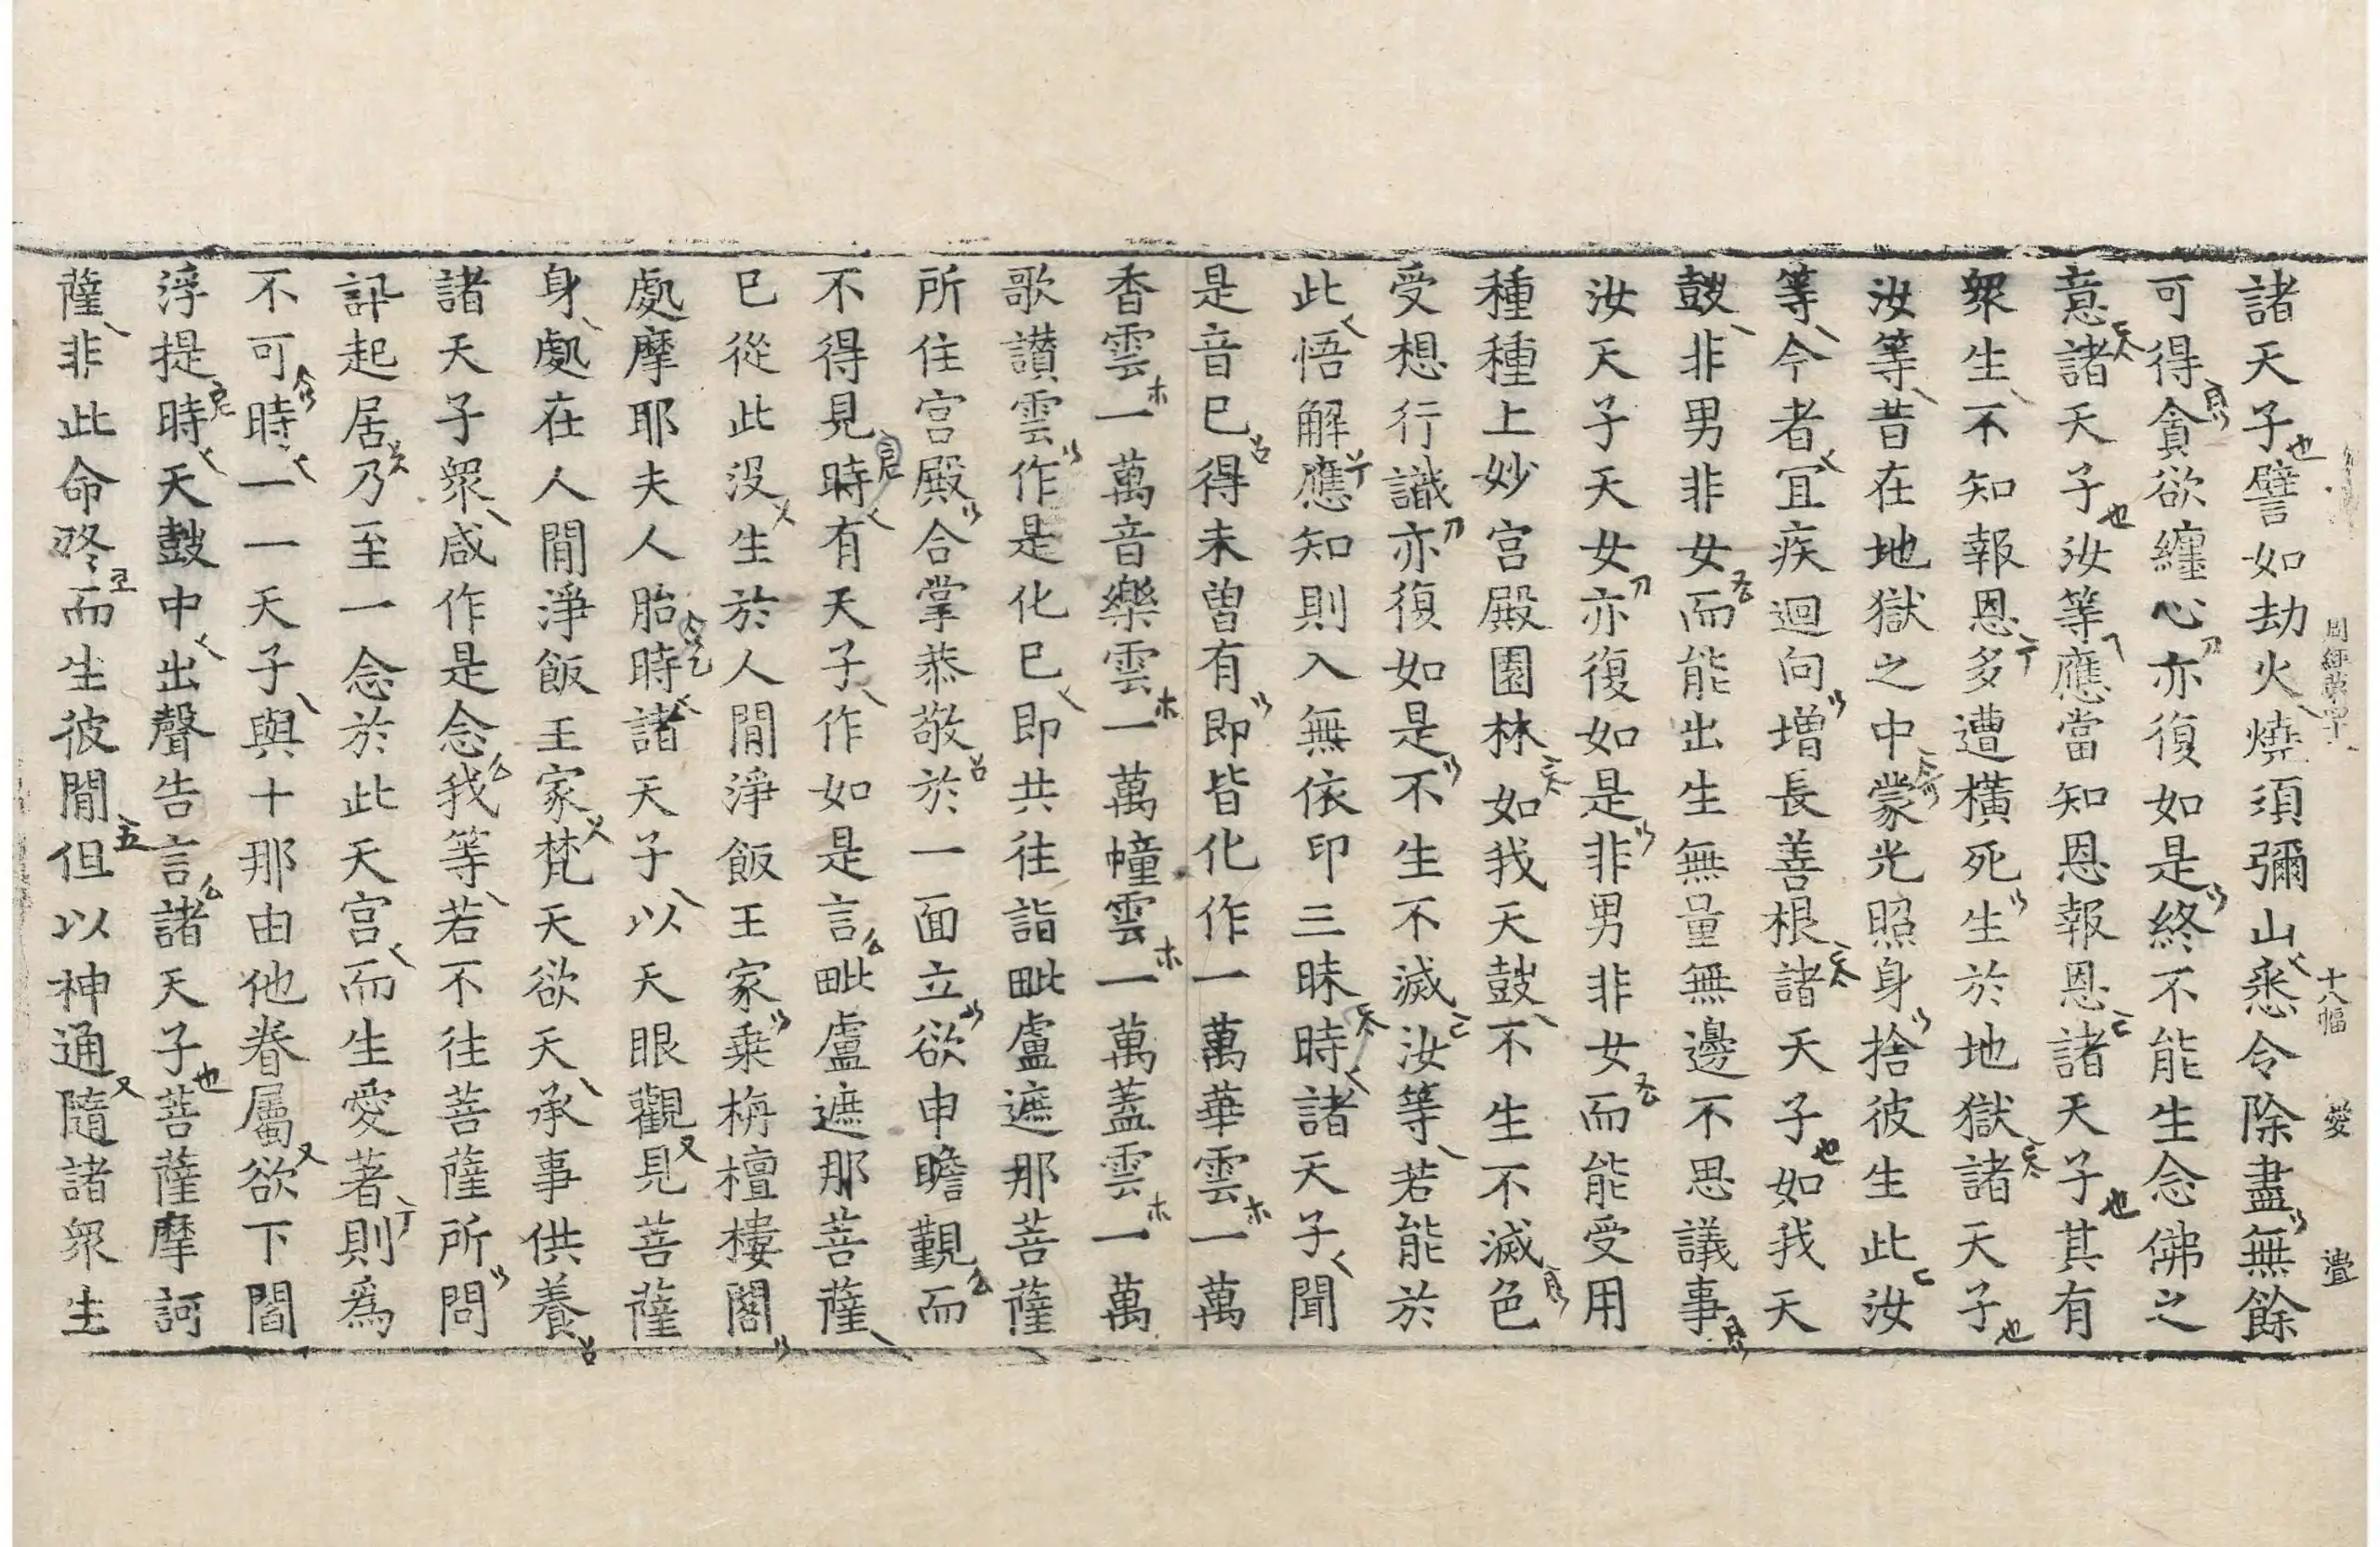 諸天子譬如劫火燒須彌山悉令除盡無餘
可得貪欲纏心亦復如是終不能生念佛之
意諸天子汝等應當知恩報恩諸天子其有
衆生不知報恩多遭橫死生於地獄諸天子
汝等昔在地獄之中蒙光照身捨彼生此汝
等今者宜疾迴向增長善根諸天子如我天
鼓非男非女而能出生無量無邊不思議事
汝天子天女亦復如是非男非女而能受用
種種上妙宮殿園林如我天鼓不生不滅色
受想行識亦復如是不生不滅汝等若能於
此悟解應知則入無依印三昧時諸天子聞
是音已得未曾有即皆化作一萬華雲一萬
香雲一萬音樂雲一萬幢雲一萬蓋雲一萬
歌讚雲作是化已即共往詣毗盧遮那菩薩
所住宮殿合掌恭敬於一面立欲申瞻覲而
不得見時有天子作如是言毗盧遮那菩薩
已從此沒生於人閒淨飯王家乘栴檀樓閣
處摩耶夫人胎時諸天子以天眼觀見菩薩
身處在人閒淨飯王家梵天欲天承事供養
諸天子衆咸作是念我等若不往菩薩所問
訊起居乃至一念於此天宮而生愛著則爲
不可時一一天子與十那由他眷屬欲下閻
浮提時天鼓中出聲告言諸天子菩薩摩訶
薩非此命終而生彼閒但以神通隨諸衆生